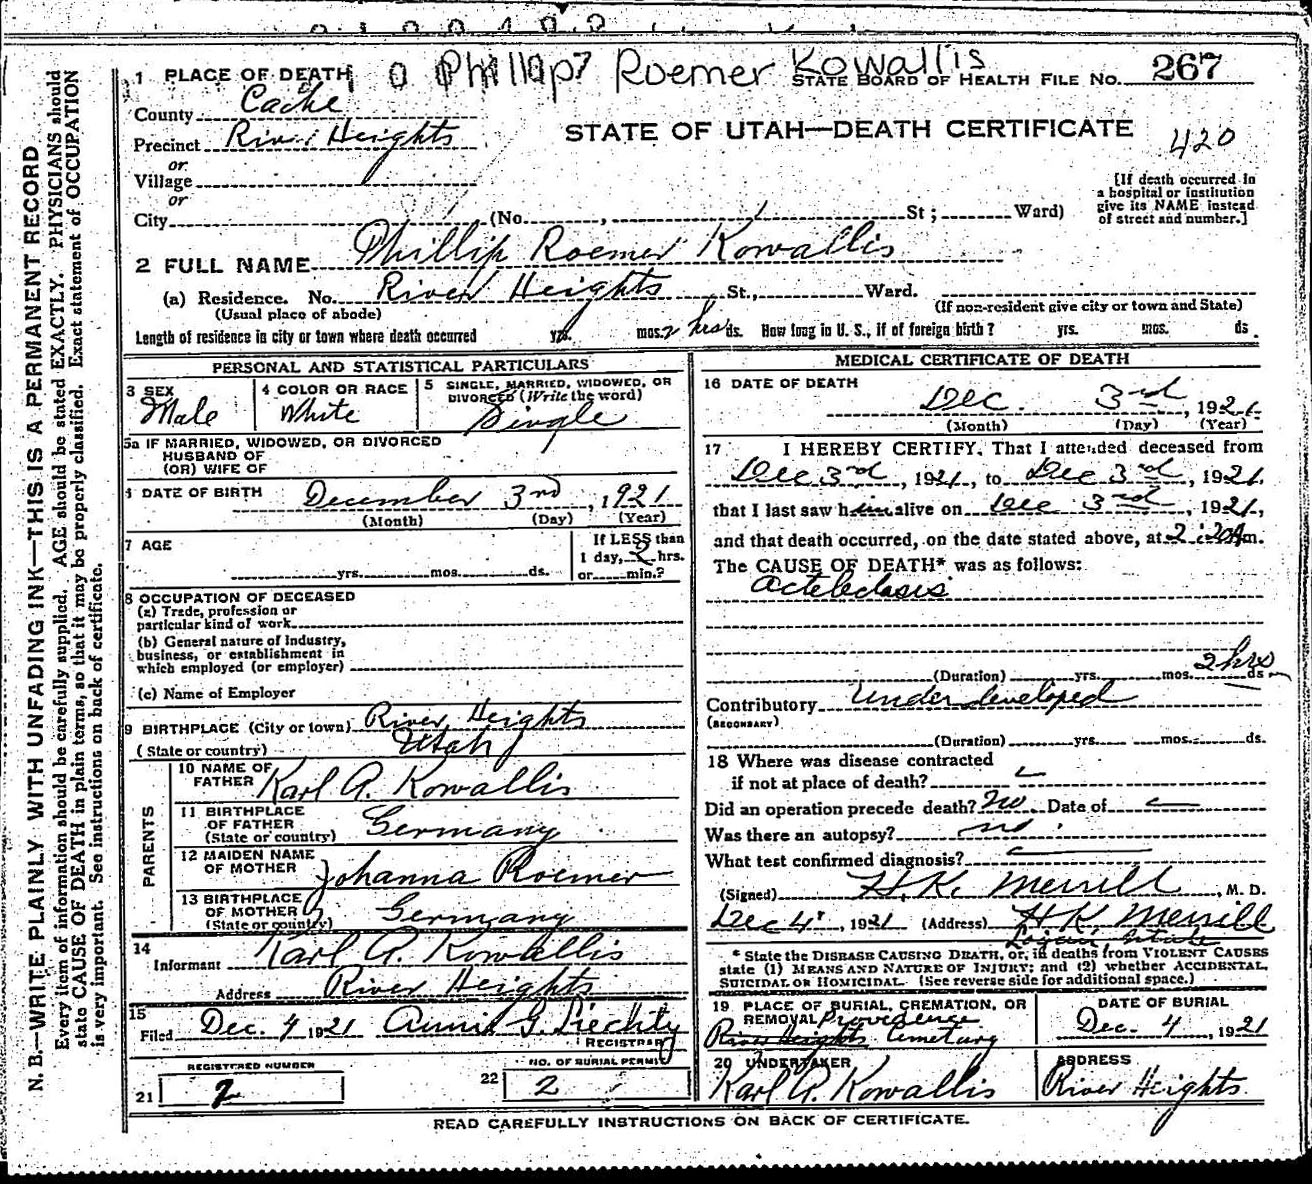 Phillip Roemer Kowallis
STATE BOARD OF HEALTH FILE NO. 267
1 PLACE OF DEATH
County Cache
Precinct River Heights
or
Village
or
City (No. , St; Ward)
STATE OF UTAH—DEATH CERTIFICATE
420
[If death occurred in
a hospital or institution
give its NAME instead
of street and number.]
2 FULL NAME Phillip Roemer Kowallis
(a) Residence. No. River Heights St., Ward.
(Usual place of abode) (If non-resident give city or town and State)
Length of residence in city or town where death occurred yrs. mos. 2 hrs ds. How long in U. S., if of foreign birth? yrs. mos. ds
PERSONAL AND STATISTICAL PARTICULARS
3 SEX Male
4 COLOR OR RACE White
5 SINGLE, MARRIED, WIDOWED, OR
DIVORCED (Write the word)
Single
5a IF MARRIED, WIDOWED, OR DIVORCED
HUSBAND OF
(OR) WIFE OF
DATE OF BIRTH December 3rd, 1921
(Month) (Day) (Year)
7 AGE yrs. mos. ds.
If LESS than
1 day, 2 hrs.
or min.?
8 OCCUPATION OF DECEASED
(a) Trade, profession or
particular kind of work
(b) General nature of industry,
business, or establishment in
which employed (or employer)
(c) Name of Employer
9 BIRTHPLACE (City or town) River Heights
(State or country) Utah
PARENTS
10 NAME OF
FATHER Karl A. Kowallis
11 BIRTHPLACE
OF FATHER
(State or country) Germany
12 MAIDEN NAME
OF MOTHER Johanna Roemer
13 BIRTHPLACE
OF MOTHER
(State or country) Germany
14
Informant Karl A. Kowallis
Address River Heights
15
Filed Dec. 4 1921 Annie G. Liechty
REGISTRAR
REGISTERED NUMBER
21 2
NO. OF BURIAL PERMIT
22 2
MEDICAL CERTIFICATE OF DEATH
16 DATE OF DEATH
Dec. 3rd, 1921
(Month) (Day) (Year)
17 I HEREBY CERTIFY, That I attended deceased from
Dec 3rd, 1921, to Dec 3rd, 1921.
that I last saw him alive on Dec 3rd, 1921,
and that death occurred, on the date stated above, at 2:20 A m.
The CAUSE OF DEATH* was as follows:
Acteledasis
2 hrs
(Duration) yrs. mos. ds
Contributory Underdeveloped
(SECONDARY)
(Duration) yrs. mos. ds.
18 Where was disease contracted
if not at place of death?
Did an operation precede death? No. Date of
Was there an autopsy? no.
What test confirmed diagnosis?
(Signed) H. K. Merrill, M. D.
Dec 4, 1921 (Address) H. K. Merrill
Logan Utah
* State the DISEASE CAUSING DEATH, or, in deaths from VIOLENT CAUSES
state (1) MEANS AND NATURE OF INJURY; and (2) whether ACCIDENTAL,
SUICIDAL OR HOMICIDAL. (See reverse side for additional space.)
19 PLACE OF BURIAL, CREMATION, OR
REMOVAL Providence
River Heights Cemetary
DATE OF BURIAL
Dec. 4, 1921
20 UNDERTAKER
Karl A. Kowallis
ADDRESS
River Heights.
READ CAREFULLY INSTRUCTIONS ON BACK OF CERTIFICATE.
N. B.—WRITE PLAINLY WITH UNFADING INK—THIS IS A PERMANENT RECORD
Every item of information should be carefully supplied. AGE should be stated EXACTLY. PHYSICIANS should
state CAUSE OF DEATH in plain terms, so that it may be properly classified. Exact statement of OCCUPATION
is very important. See instructions on back of certificate.